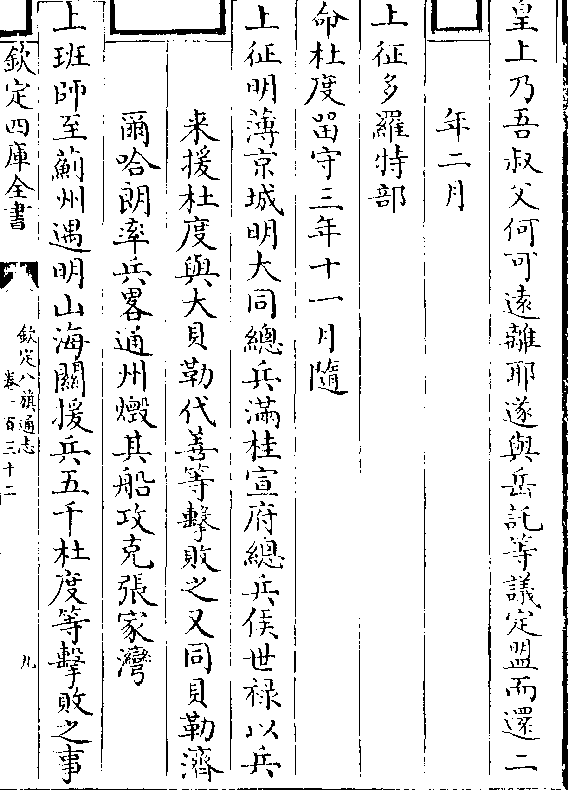 皇上乃吾叔父何可遠離耶遂與岳託等議定盟而還二
年二月
上征多羅特部
命杜度留守三年十一月隨
上征明薄京城明大同總兵滿桂宣府總兵侯世祿以兵
来援杜度與大貝勒代善等擊敗之又同貝勒濟
爾哈朗率兵畧通州燬其船攻克張家灣
上班師至薊州遇明山海關援兵五千杜度等擊敗之事
欽定四庫全書
欽定八旗通志
卷一百三十二
九